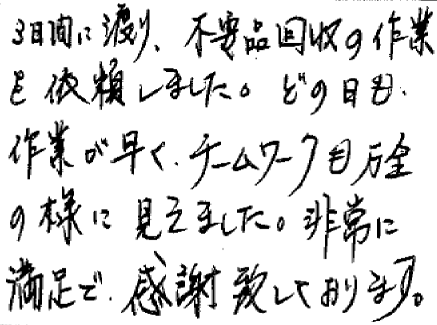 3日間に渡り、不要品回収の作業
を依頼しました。どの日も、
作業が早く、チームワークも万全
の様に見えました。非常に
満足で、感謝致しております。